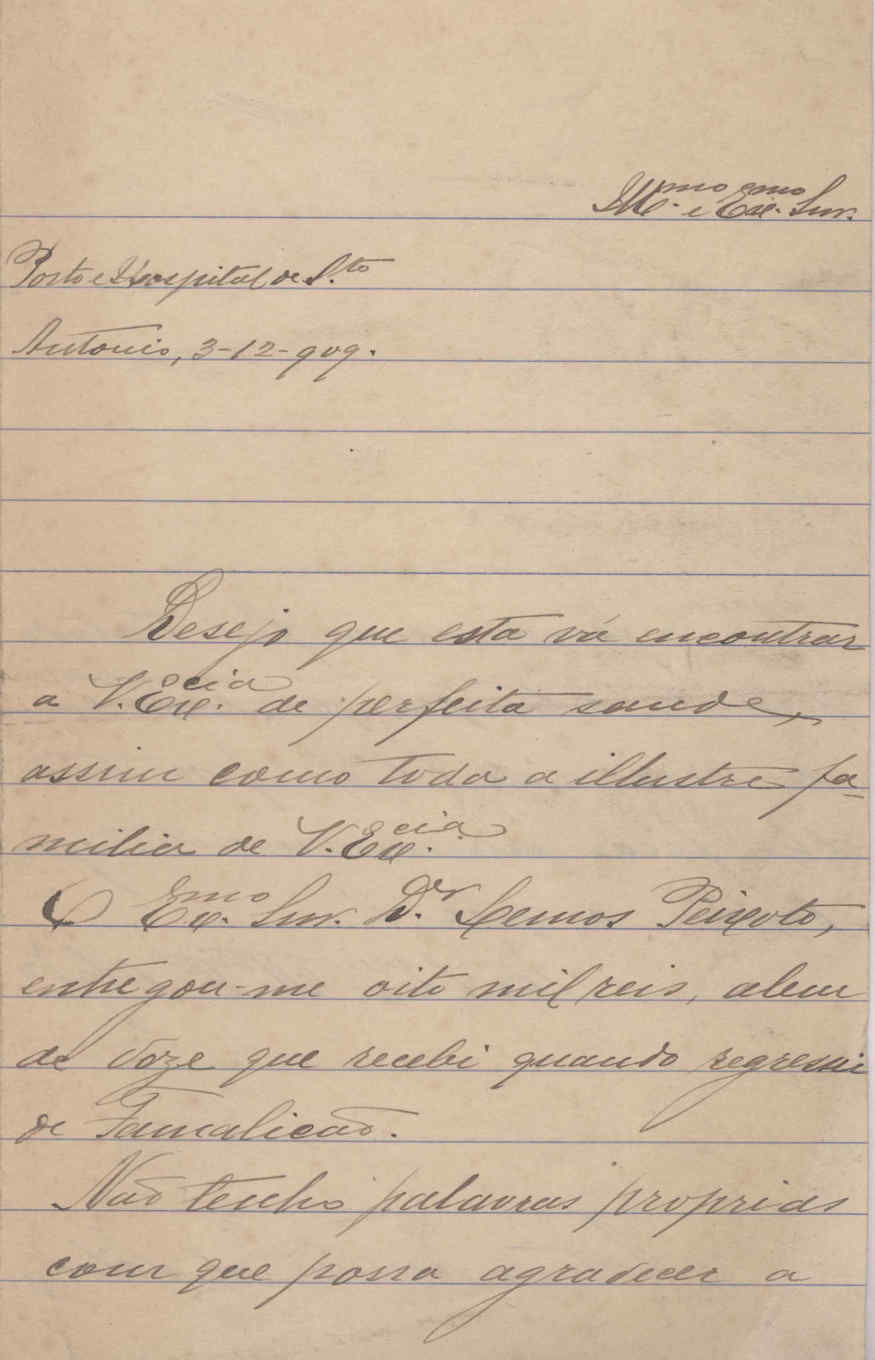 Ill.mo e Ex.emo Snr.
Porto e Hospital de S.to
Antonio, 3-12-909.
Desejo que esta vá encontrar
a V. Ex.cia de perfeita saude,
assim como toda a illustre fa-
milia de V. Ex.cia.
O Ex.mo Snr. D.r Lemos Peixoto,
entregou-me oito mil reis, alem
de doze que recebi quando regressei
de Famalicão.
Não tenho palavras proprias
com que possa agradecer a